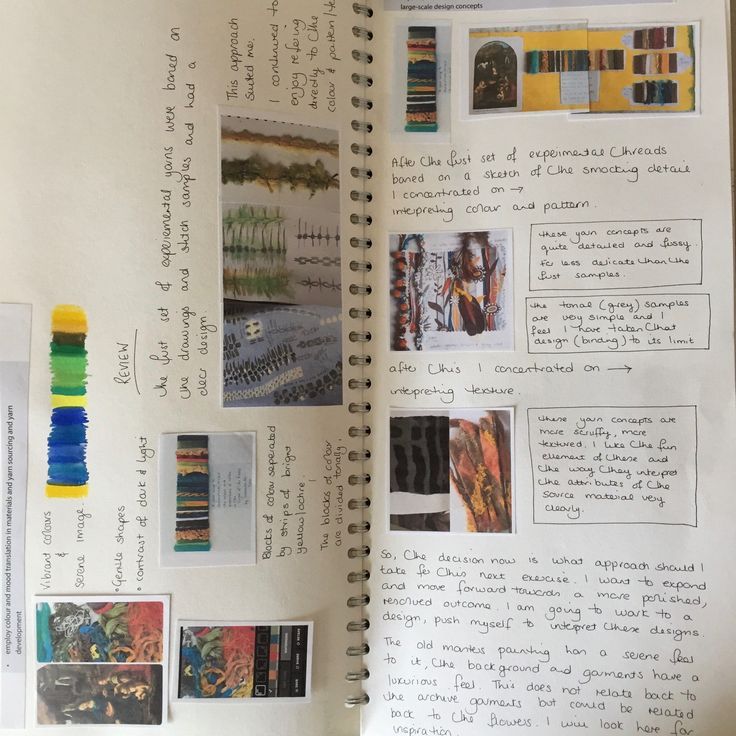 • employ colour and mood translation in materials and yarn sourcing and yarn
development
Vibrant colours
&
serene image
• Gentle shapes
• contrast of dark & light
REVIEW
The first set of experiemental yarns were based on
the drawings and stitch samples and had a
clear design
This approach
suited me.
I continued to
enjoy refering
directly to the
colour & pattern/
Blocks of colour seperated
by strips of bright
yellow/ochre.
The blocks of colour
are divided tonally.
large-scale design concepts
After the first set of experimental threads
based on a sketch of the smocking detail
I concentrated on →
interpreting colour and pattern.
these yarn concepts are
quite detailed and fussy.
far less delicate than the
first samples.
the tonal (grey) samples
are very simple and I
feel I have taken that
design (binding) to its limit
after this I concentrated on →
interpreting texture.
these yarn concepts are
more scruffy, more
textured. I like the fun
element of these and
the way they interpret
the attributes of the
source material very
clearly.
So, the decision now is what approach should I
take for this next exercise. I want to expand
and move forward towards a more polished,
resolved outcome. I am going to work to a
design, push myself to interpret these designs
The old masters painting has a serene feel
to it, the background and garments have a
luxurious feel. This does not relate back to
the archive garments but could be related
back to the flowers. I will look here for
inspiration.